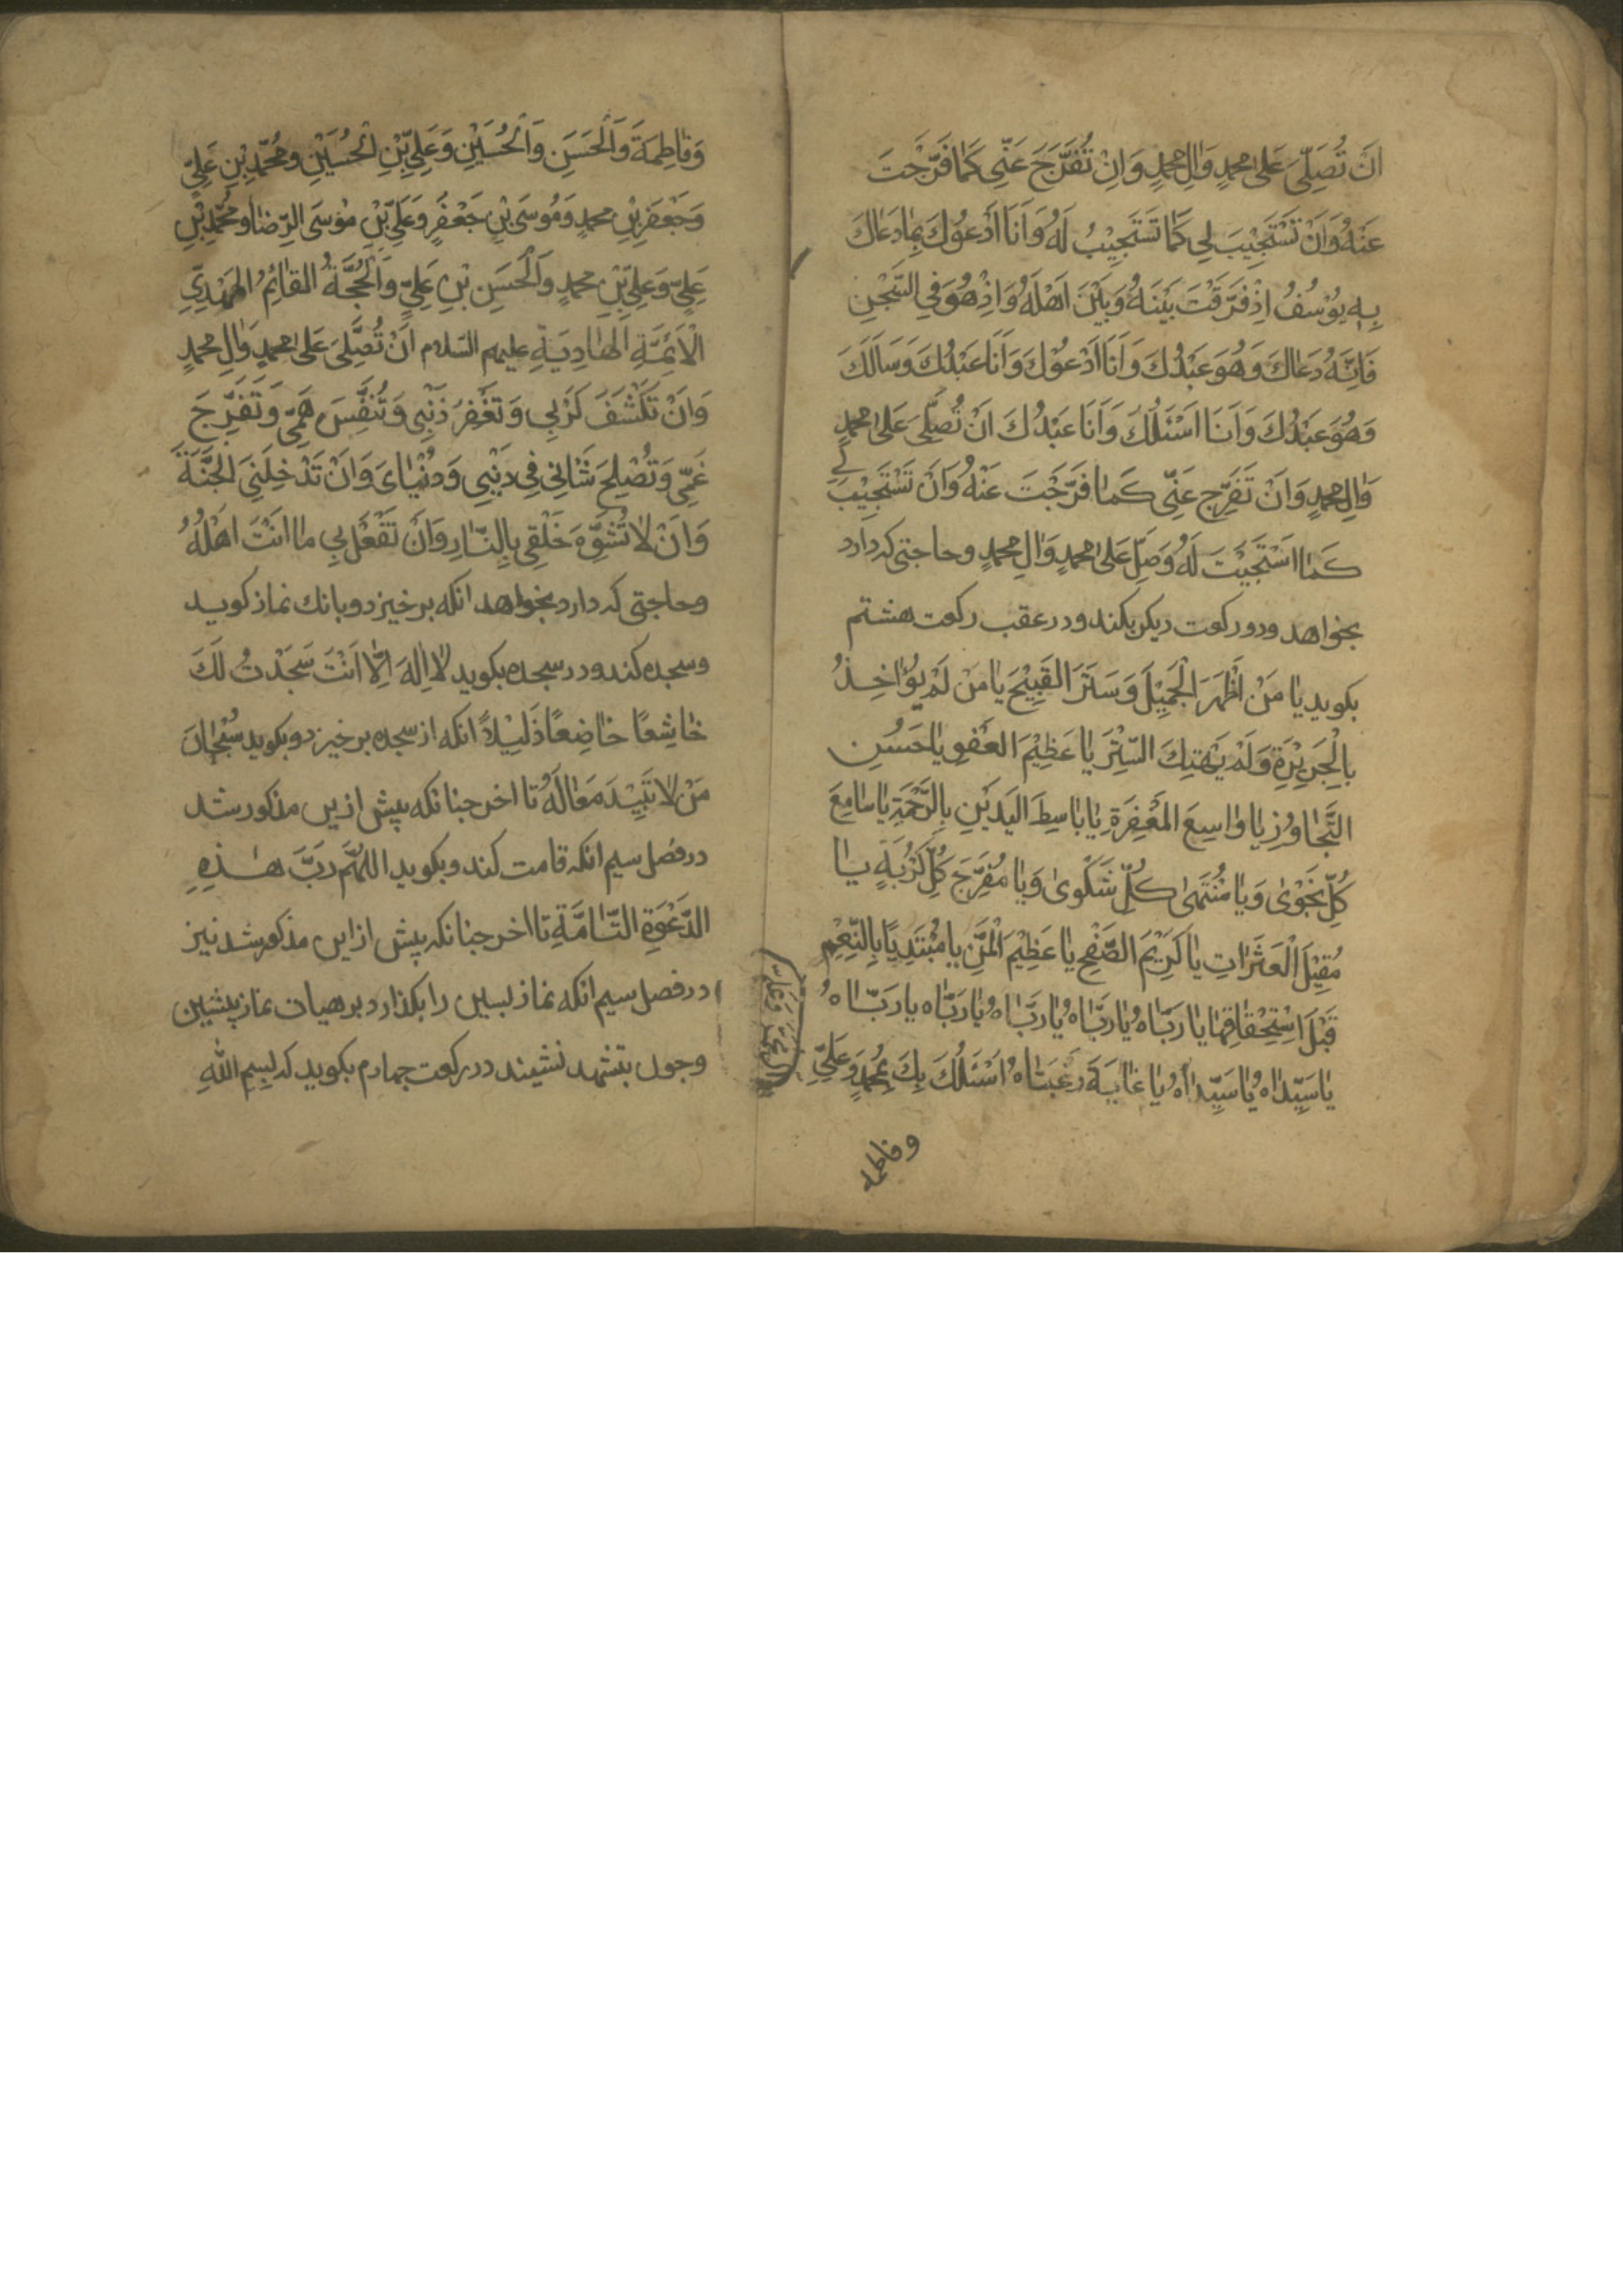 اَنْ تُصَلِّىَ عَلىٰ محمدٍ وَاٰلِ محمدٍ وَاِنْ تُفَرِّجَ عَنّى كَمٰا فَرَّجْتَ
عَنْهُ وَاَنْ تَسْتَجِيْبَ لِي كَمٰا تَسْتَجِيْبُ لَهُ وَاَنَا اَدْعُوْكَ بِمٰا دَعٰاكَ
بِهِ يُوْسُفُ اِذْ فَرَّقْتَ بَيْنَهُ وَبَيْنَ اَهْلَهُ وَاِذْ هُوَ فِي السِّجْنِ
فَاِنَّهُ دَعٰاكَ وَهُوَ عَبْدُكَ وَاَنَا اَدْعُوْكَ وَاَنَا عَبْدُكَ وَسَاَلَكَ
وَهُوَ عَبْدُكَ وَاَنَا اَسْئَلُكَ وَاَنَا عَبْدُكَ اَنْ تُصَلِّىَ عَلىٰ محمدٍ
وَاٰلِ محمدٍ وَانْ تَفَرِّج عَنّى كَمٰا فَرَّجْتَ عَنْهُ وَاَنْ تَسْتَجِيْبَ لي
كَمٰا اسْتَجَبْتَ لَهُ وَصَلِّ عَلىٰ محمدٍ وَاٰلِ محمدٍ وحاجتى كه دارد
بخواهد ودو ركعت ديكر بكند ودر عقب ركعت هشتم
بكويد يٰا مَنْ اَظْهَرَ الْجَمِيْلَ وَسَتَرَ القَبِيْحَ يٰا مَنْ لَمْ يُؤٰاخِذُ
بِالْجَرِيْرَةِ وَلَمْ يَهْتِكَ السِّتْرَ يٰا عَظِيْمَ العَفْوِ يٰا حَسَنَ
التَّجٰاوُزِ يٰا وٰاسِعَ المَغْفِرَةِ يٰا بٰاسِطَ اليَدَيْنِ بِالرَّحْمَةِ يٰا سٰامِعَ
كُلِّ نَجْوٰى وَيٰا مُنْتَهىٰ كُلِّ شَكْوىٰ وَيٰا مُفَرِّجَ كُلِّ كُرْبَةٍ يٰا
مُقِيْلَ الْعَثَرَاتِ يٰا كَرِيْمَ الصَّفْحِ يٰا عَظِيْمَ الْمَنِّ يا مُبْتَدِيًا بِالنِّعِمِ
قَبْلَ اسْتِحْقٰاقِهٰا يٰا رَبّٰاهُ يٰا رَبّٰاهُ يٰا رَبّٰاهُ يٰا رَبّٰاه يا رَبّٰاهُ
يٰا سَيِّدٰاهُ يٰا سَيِّدٰاهُ يٰا غٰايَةَ رَغْبَتٰاهُ اَسْئَلُكَ بِكَ بِمُحمدٍ وَعَلِيٍّ
وفاطمه
وَفٰاطِمَةَ وَالْحَسَنِ وَالْحُسَيْنِ وَعَلِيِّ بْنِ الْحُسَيْنِ ومُحَمَّدِ بْنِ عَلِيٍّ
وَجَعْفَرِ بْنِ محمدٍ وَمُوسَى بْنِ جَعْفَرٍ وَعَلِيِّ بْنِ مُوْسَى الرِّضٰا ومُحَمَّدِ بْنِ
عَلِيٍّ وَعَلِيِّ بْنِ محمدٍ وَالْحَسَنِ بْنِ عَلِيٍّ وَالْحُجَّةُ القٰائِمُ المَهْدِيِّ
الْاَئِمَّةِ الهٰادِيَةِ عليهم السّلام اَنْ تُصَلِّىَ عَلىٰ محمدٍ وَاٰلِ محمدٍ
وَاَنْ تَكْشَفَ كَرْبِي وَتَغْفِرَ ذَنْبِى وَتُنَفِّسَ هَمّى وَتَفَرِّجَ
غَمّى وَتُصْلِحَ شَانِى فِى دِيْنِيى وَدُنْيٰاىَ وَاَنْ تَدْخِلَنِىَ الجَنَّةَ
وَاَنْ لٰا تُشَوِّهَ خَلْقِى بِالنّٰارِ وَاَنْ تَفْعَلْ بِي مٰا اَنْتَ اَهْلُهُ
وحاجتى كه دارد بخواهد انكه برخيزد وبانك نماز كويد
وسجده كند ودر سجده بكويد لٰا اِلٰهَ اِلّٰا اَنْتَ سَجَدْتُ لَكَ
خٰاشِعًا خٰاضِعًا ذَلِيْلًا انكه از سجده برخيزد وبكويد سُبْحٰانَ
مَنْ لٰا تَبِيْدُ مَعٰالَهُ تا اخر جنانكه پيش ازين مذكور شد
در فصل سيم انكه قامت كند وبكويد اللهُمَّ رَبَّ هٰذِهِ
الدَّعْوَةِ التّٰامَّةِ تا اخر جنانكه پيش از اين مذكور شد نيز
در فصل سيم انكه نماز پسين را بكذارد برهيات نماز پيشين
وجون بتشهد نشيند در ركعت جهارم بكويد كه بِسِمِ اللّٰهِ